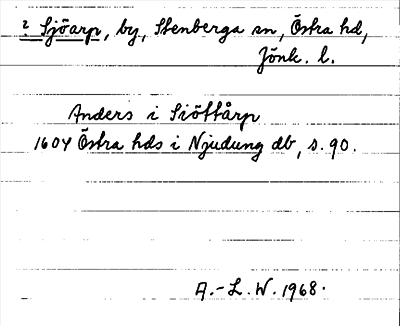 ? Sjöarp, by, Stenberga sn, Östra hd,
Jönk. l.
Anders i Siöttårp
1604 Östra hds i Njudung db, s. 90.
A.-L. W. 1968.